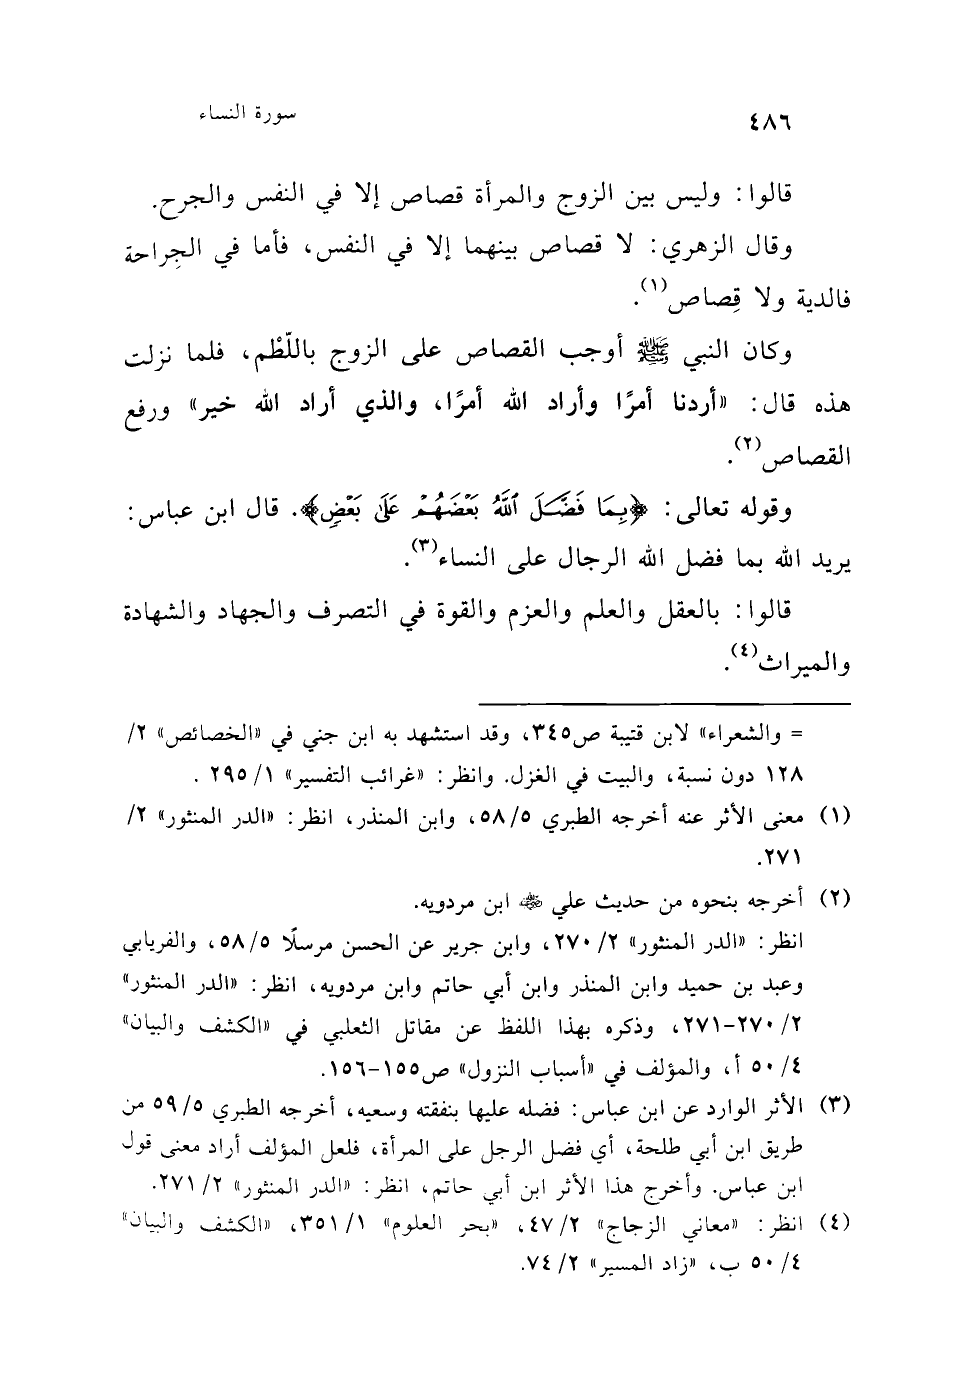 ٤٨٦ سورة النساء
قالوا: وليس بين الزوج والمرأة قصاص إلا في النفس والجرح.
وقال الزهري: لا قصاص بينهما إلا في النفس، فأما في الجِراحة
فالدية ولا قِصاص(١).
وكان النبي ﷺ أوجب القصاص على الزوج باللّطْم، فلما نزلت
هذه قال: «أردنا أمرًا وأراد الله أمرًا، والذي أراد الله خير» ورفع
القصاص(٢).
وقوله تعالى: ﴿بِمَا فَضَّلَ ٱللَّهُ بَعْضَهُمْ عَلَىٰ بَعْضٍ﴾. قال ابن عباس:
يريد الله بما فضل الله الرجال على النساء(٣).
قالوا: بالعقل والعلم والعزم والقوة في التصرف والجهاد والشهادة
والميراث(٤).
= والشعراء» لابن قتيبة ص٣٤٥، وقد استشهد به ابن جني في «الخصائص» ٢/
١٢٨ دون نسبة، والبيت في الغزل. وانظر: «غرائب التفسير» ١/ ٢٩٥ .
(١) معنى الأثر عنه أخرجه الطبري ٥/ ٥٨، وابن المنذر، انظر: «الدر المنثور» ٢/
٢٧١.
(٢) أخرجه بنحوه من حديث علي رضي الله عنه ابن مردويه.
انظر: «الدر المنثور» ٢/ ٢٧٠، وابن جرير عن الحسن مرسلًا ٥/ ٥٨، والفريابي
وعبد بن حميد وابن المنذر وابن أبي حاتم وابن مردويه، انظر: «الدر المنثور»
٢/ ٢٧٠-٢٧١، وذكره بهذا اللفظ عن مقاتل الثعلبي في «الكشف والبيان»
٤/ ٥٠ أ، والمؤلف في «أسباب النزول» ص١٥٥-١٥٦.
(٣) الأثر الوارد عن ابن عباس: فضله عليها بنفقته وسعيه، أخرجه الطبري ٥/ ٥٩ من
طريق ابن أبي طلحة، أي فضل الرجل على المرأة، فلعل المؤلف أراد معنى قول
ابن عباس. وأخرج هذا الأثر ابن أبي حاتم، انظر: «الدر المنثور» ٢/ ٢٧١.
(٤) انظر: «معاني الزجاج» ٢/ ٤٧، «بحر العلوم» ١/ ٣٥١، «الكشف والبيان»
٤/ ٥٠ ب، «زاد المسير» ٢/ ٧٤.